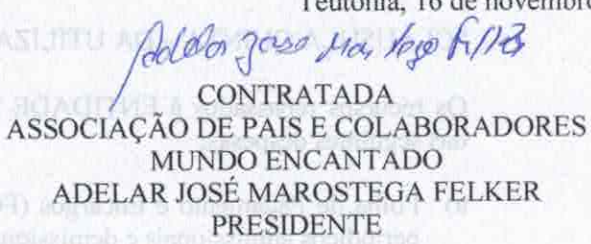 Teutônia, 16 de novembro
CONTRATADA
ASSOCIAÇÃO DE PAIS E COLABORADORES
MUNDO ENCANTADO
ADELAR JOSÉ MAROSTEGA FELKER
PRESIDENTE